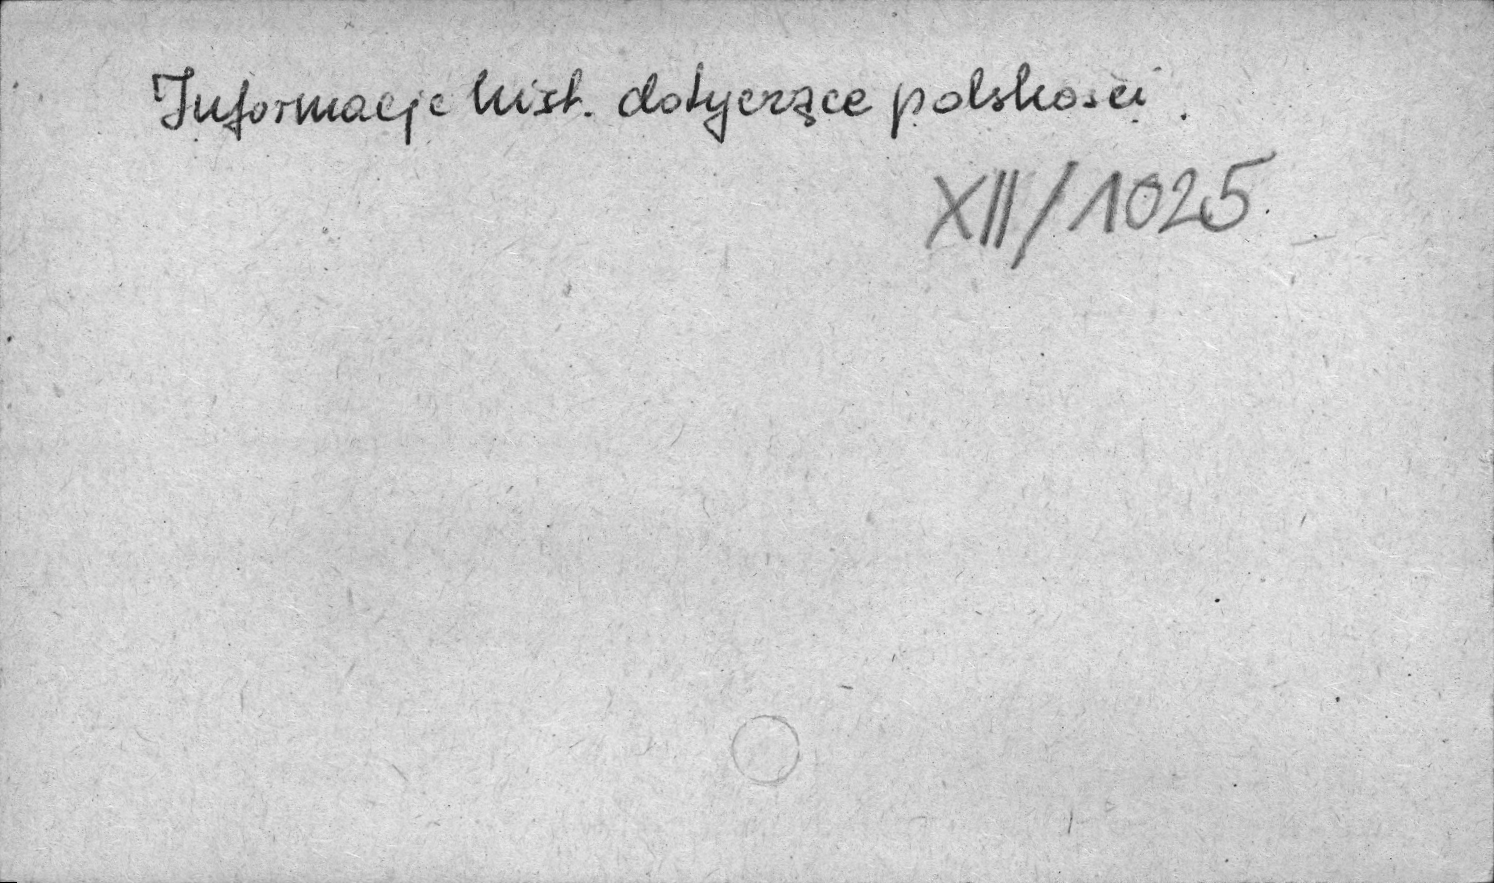 Informacje hist. dotyczące polskości.
XII/1025